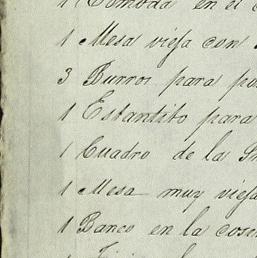 1 Comoda en el
1 Mesa vieja con
3 Burros para
1 Estantito para
1 Cuadro de la
1 Mesa muy vieja
1 Banco en la
1